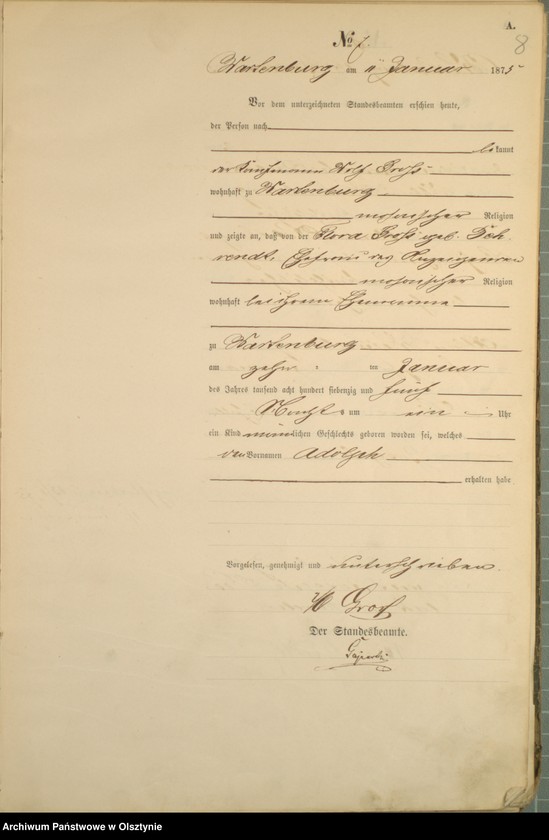 A.
8
No 7.
Wartenburg am 11 Januar 1875
Vor dem unterzeichneten Standesbeamten erschien heute,
der Person nach
bekannt
der Kaufmann Wolf Groß
wohnhaft zu Wartenburg
mosaischer Religion
und zeigte an, daß von der Flora Groß geb. Beh-
rendt, Ehefrau des Anzeigenden
mosaischer Religion
wohnhaft bei ihrem Ehemanne
zu Wartenburg
am zehn ten Januar
des Jahres tausend acht hundert siebenzig und fünf
Nachts um ein Uhr
ein Kind männlichen Geschlechts geboren worden sei, welches
den Vornamen Adolph
erhalten habe
Vorgelesen, genehmigt und unterschrieben.
W Groß
Der Standesbeamte.
Archiwum Państwowe w Olsztynie